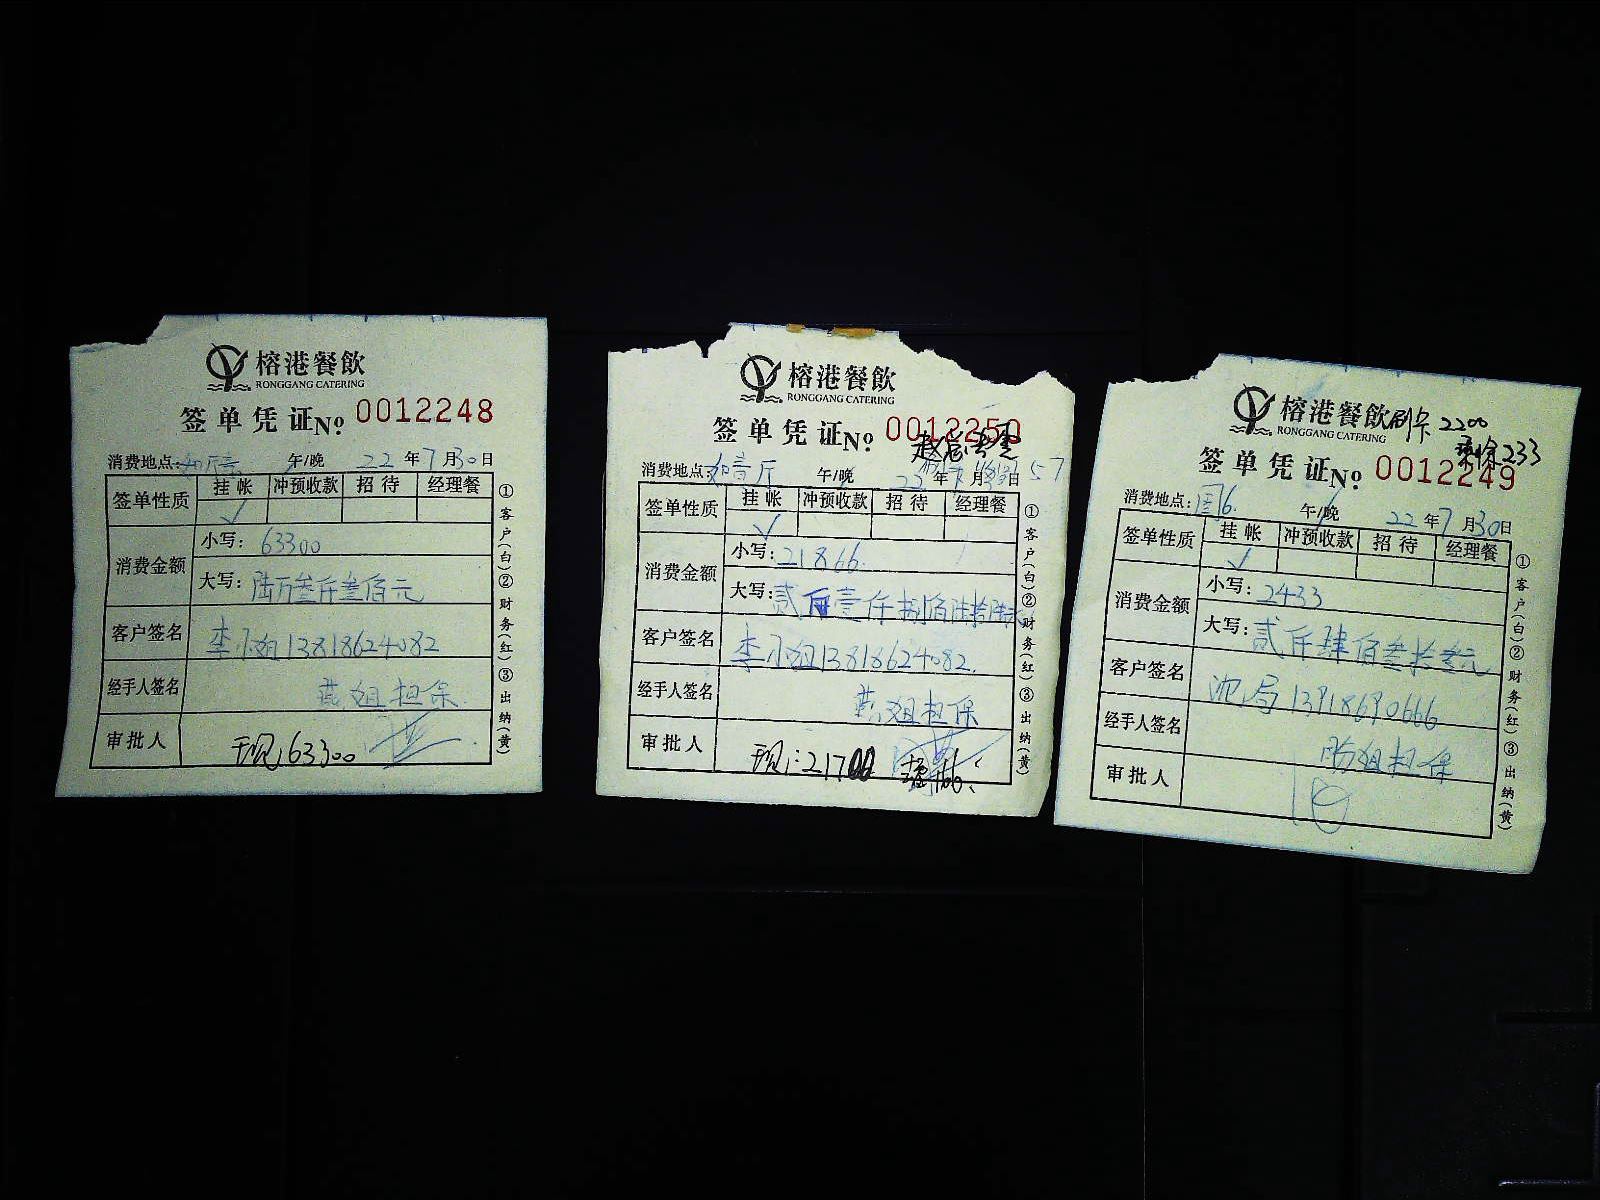 榕港餐飲
RONGGANG CATERING
签单凭证 No. 0012248
消费地点: 午/晚 22年7月30日
签单性质 挂帐 冲预收款 招待 经理餐
✓
消费金额 小写: 63300
大写: 陆万叁仟叁佰元
客户签名 李小姐13818624082
经手人签名 燕姐担保
审批人 现:63300
①客户(白)②财务(红)③出纳(黄)
榕港餐飲
RONGGANG CATERING
签单凭证 No. 0012250
消费地点: 如意厅 午/晚 22年7月日
签单性质 挂帐 冲预收款 招待 经理餐
✓
消费金额 小写: 21866
大写: 贰万壹仟捌佰陆拾陆元
客户签名 李小姐13818624082.
经手人签名 燕姐担保
审批人 现:21700
①客户(白)②财务(红)③出纳(黄)
榕港餐飲 刷卡 2200
RONGGANG CATERING
233
签单凭证 No. 0012249
消费地点: 周6. 午/晚 22年7月30日
签单性质 挂帐 冲预收款 招待 经理餐
✓
消费金额 小写: 2433
大写: 贰仟肆佰叁拾叁元
客户签名 沈局13918690666
经手人签名 担保
审批人
①客户(白)②财务(红)③出纳(黄)